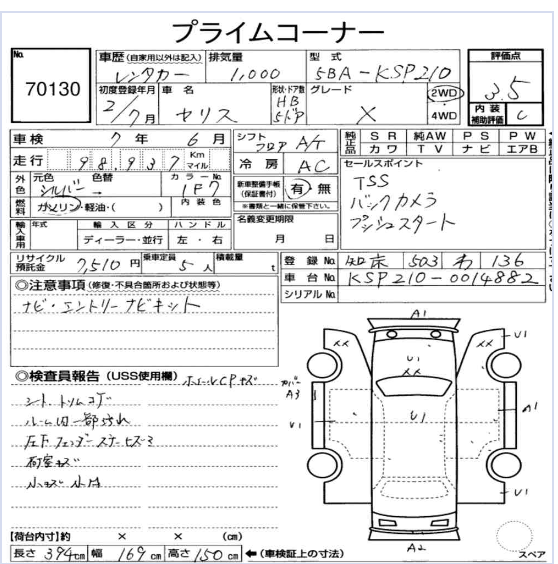 プライムコーナー
No. 70130
車歴 (自家用以外は記入) レンタカー
排気量 1,000
型式 5BA-KSP210
評価点 3.5
内装補助評価 C
初度登録年月 2/7月
車名 ヤリス
形状・ドア数 HB 5ドア
グレード X
2WD
4WD
車検 7年 6月
シフト フロア A/T
純正品 SR 純AW PS PW
カワ TV ナビ エアB
走行 98,937 Km マイル
冷房 AC
セールスポイント
TSS
バックカメラ
プッシュスタート
外色 元色 色替 シルバー
カラーNo. 1F7
新車整備手帳 (保証書付) 有・無
※書類と一緒に保管下さい。
燃料 ガソリン・軽油・( )
内装色
名義変更期限
月 日
輸入車用 年式 輸入区分 ハンドル
ディーラー・並行 左・右
リサイクル預託金 7,510円
乗車定員 5人
積載量 t
登録No. 503 わ 136
車台No. KSP210-0014882
シリアルNo.
◎注意事項 (修復・不具合箇所および状態等)
ナビ・エントリーナビキット
◎検査員報告 (USS使用欄) ホイールCPキズ
シート、トリムコゲ
ルーム内一部汚れ
荷室キズ
小キズ 小凹
カバー A3
A1
XX
XX
U1
U1
XX
U1
U1
A1
U1
A2
スペア
【荷台内寸】約 × × (cm)
長さ 394cm 幅 169cm 高さ 150cm ←(車検証上の寸法)